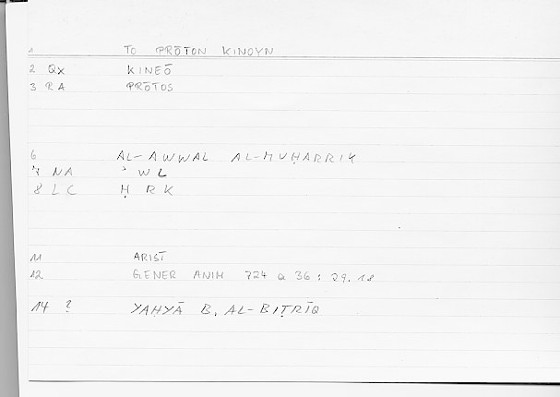 1 TO PRŌTON KINOYN
2 QX KINEŌ
3 RA PRŌTOS
6 AL-AWWAL AL-MUḤARRIK
7 NA ʾWL
8 LC Ḥ R K
11 ARIST
12 GENER ANIM 724 a 36 : 29.18
14 ? YAHYĀ B. AL-BIṬRĪQ